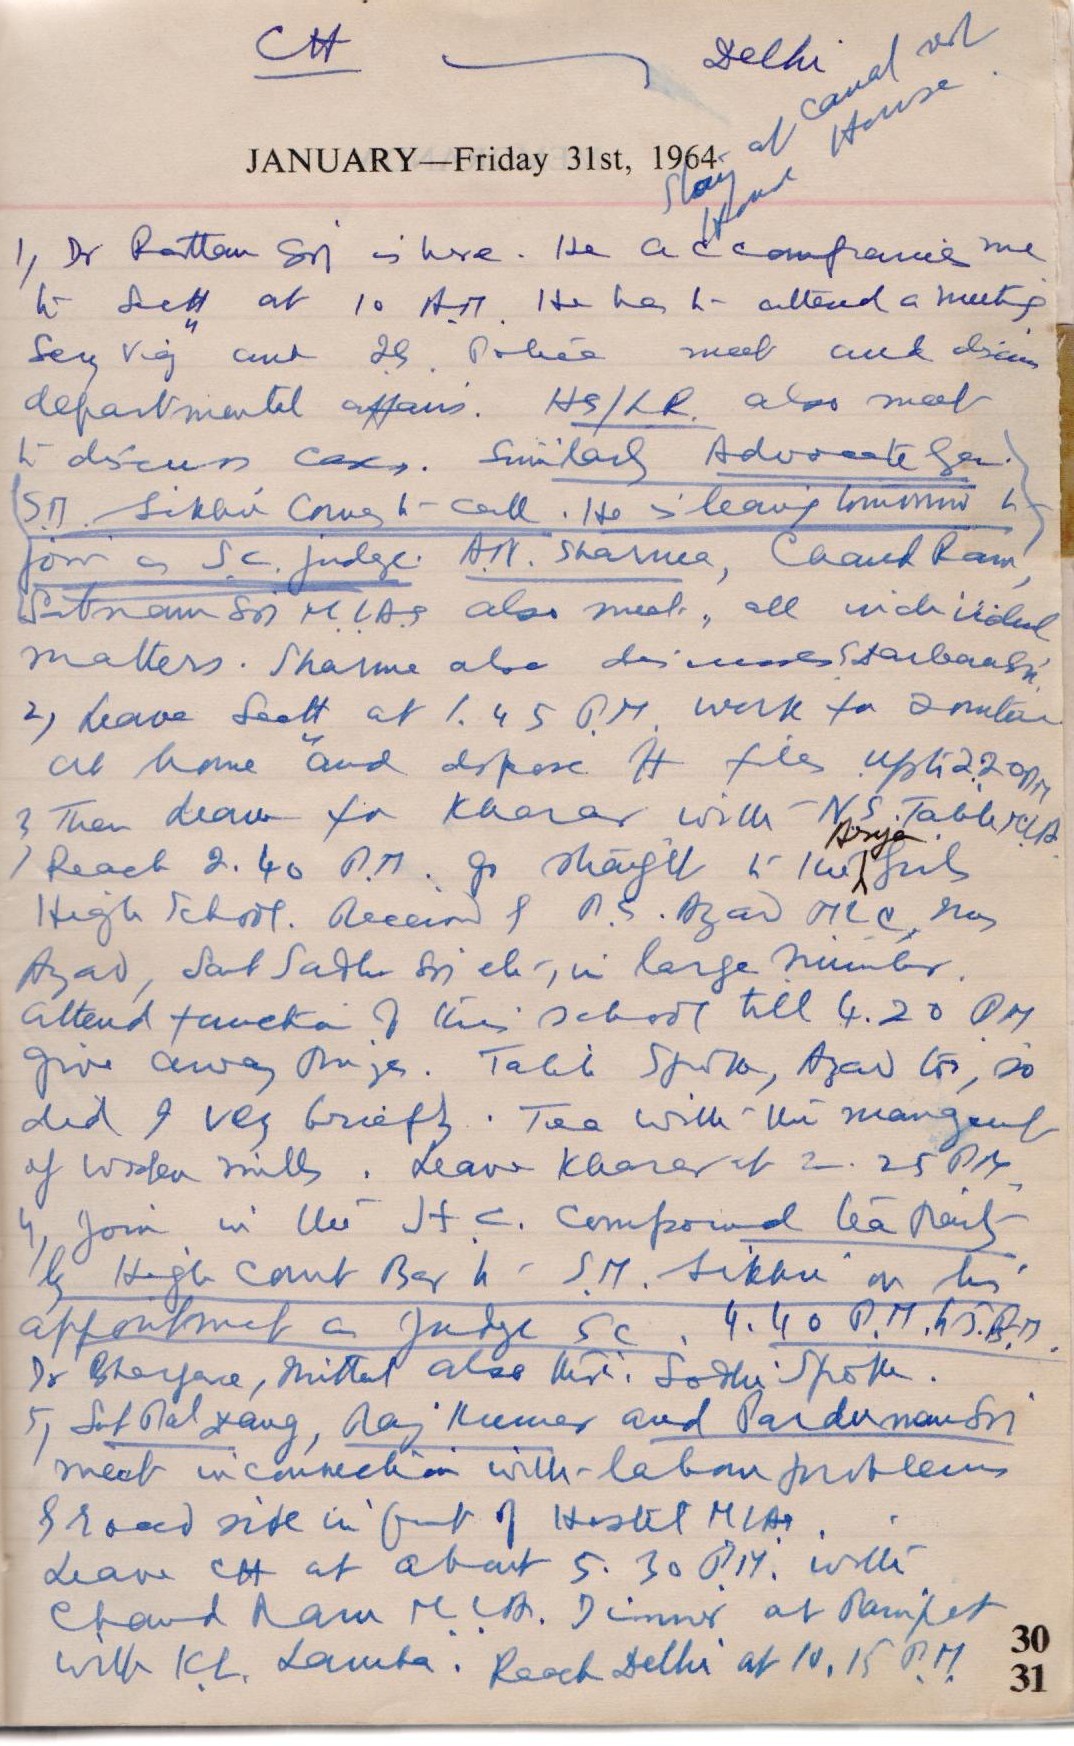 CH Delhi
Stay at Canal
House
JANUARY—Friday 31st, 1964
1, Dr Rattan is here. He accompanies me
to Sectt at 10 A.M. He has to attend a meeting
Secy Vig and IG Police meet and discuss
departmental affairs. HS/LR. also meet
to discuss cases. Similarly Advocate Gen.
S.M. Sikhri comes to call. He is leaving tomorrow to
join as S.C. judge. A.N. Sharma, Chand Ram,
Satnam M.L.As also meet, all individual
matters. Sharma also discusses
2, Leave Sectt at 1.45 P.M. work for
at home and dispose of files upto 2.20 PM
3, Then leave for Kharar with N.S. Talib MLA
Reach 2.40 P.M. go straight to the Arya Girls
High School. P.S. Azad MLC, Mrs
Azad, Sant Sadhu etc., in large number.
Attend function of this school till 4.20 PM
give away prizes. Talib spoke, Azad too, so
did I very briefly. Tea with the
of mills. Leave Kharar at 25 P.M.
4, Join in the H.C. compound tea party
by High Court Bar to S.M. Sikhri on his
appointment as Judge SC. 4.40 P.M. to 5. P.M.
Dr Bhargava, Mittal also there. Sodhi spoke.
5, Sat Pal Dang, Raj Kumar and Parduman
meet in connection with labour problems
& road side in front of Hostel MLAs.
Leave CH at about 5.30 P.M. with
Chand Ram M.L.A. Dinner at Panipat
with K.L. Lamba. Reach Delhi at 10.15 P.M.
30
31